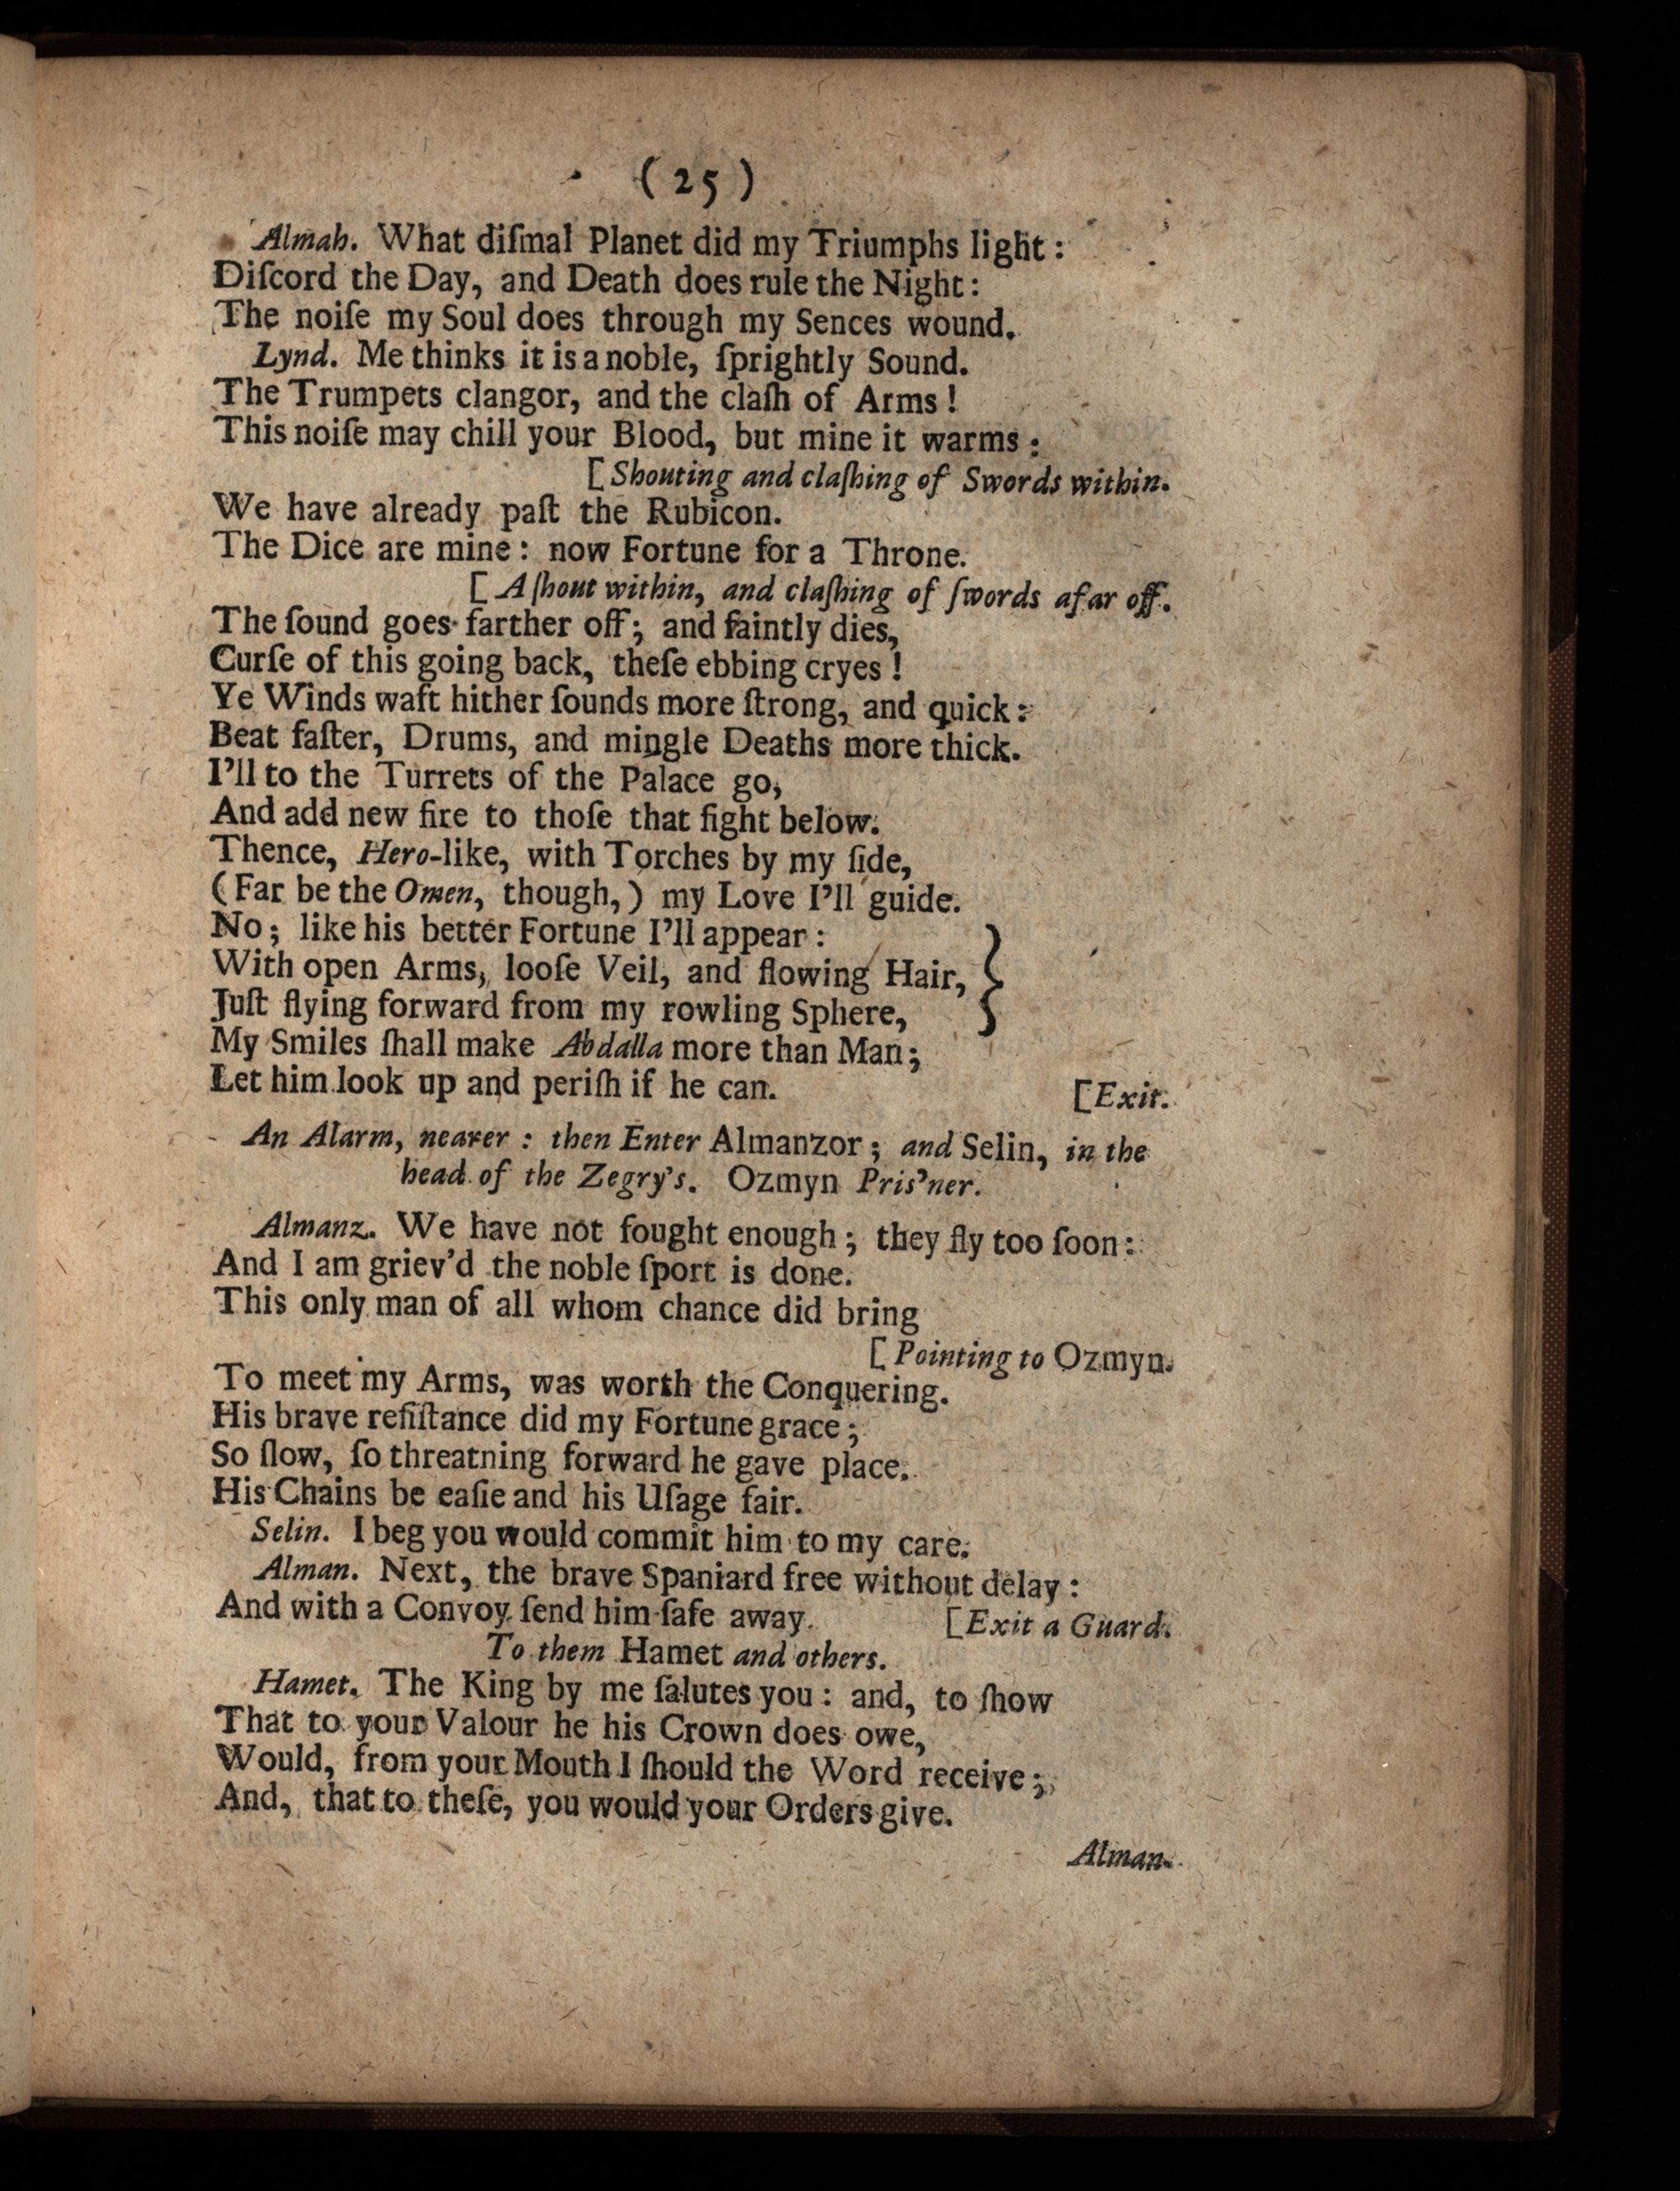 ( 25 )
Almah. What diſmal Planet did my Triumphs light :
Diſcord the Day, and Death does rule the Night :
The noiſe my Soul does through my Sences wound.
Lynd. Me thinks it is a noble, ſprightly Sound.
The Trumpets clangor, and the claſh of Arms !
This noiſe may chill your Blood, but mine it warms :
[ Shouting and claſhing of Swords within.
We have already paſt the Rubicon.
The Dice are mine : now Fortune for a Throne.
[ A ſhout within, and claſhing of ſwords afar off.
The ſound goes farther off ; and faintly dies,
Curſe of this going back, theſe ebbing cryes !
Ye Winds waft hither ſounds more ſtrong, and quick :
Beat faſter, Drums, and mingle Deaths more thick.
I'll to the Turrets of the Palace go,
And add new fire to thoſe that fight below.
Thence, Hero-like, with Torches by my ſide,
( Far be the Omen, though, ) my Love I'll guide.
No ; like his better Fortune I'll appear :
With open Arms, looſe Veil, and flowing Hair,
Juſt flying forward from my rowling Sphere, }
My Smiles ſhall make Abdalla more than Man ;
Let him look up and periſh if he can. [ Exit.
An Alarm, nearer : then Enter Almanzor ; and Selin, in the
head of the Zegry's. Ozmyn Pris'ner.
Almanz. We have not fought enough ; they fly too ſoon :
And I am griev'd the noble ſport is done.
This only man of all whom chance did bring
[ Pointing to Ozmyn.
To meet my Arms, was worth the Conquering.
His brave reſiſtance did my Fortune grace ;
So ſlow, ſo threatning forward he gave place.
His Chains be eaſie and his Uſage fair.
Selin. I beg you would commit him to my care.
Alman. Next, the brave Spaniard free without delay :
And with a Convoy ſend him ſafe away. [ Exit a Guard.
To them Hamet and others.
Hamet. The King by me ſalutes you : and, to ſhow
That to your Valour he his Crown does owe,
Would, from your Mouth I ſhould the Word receive ;
And, that to theſe, you would your Orders give.
Alman.